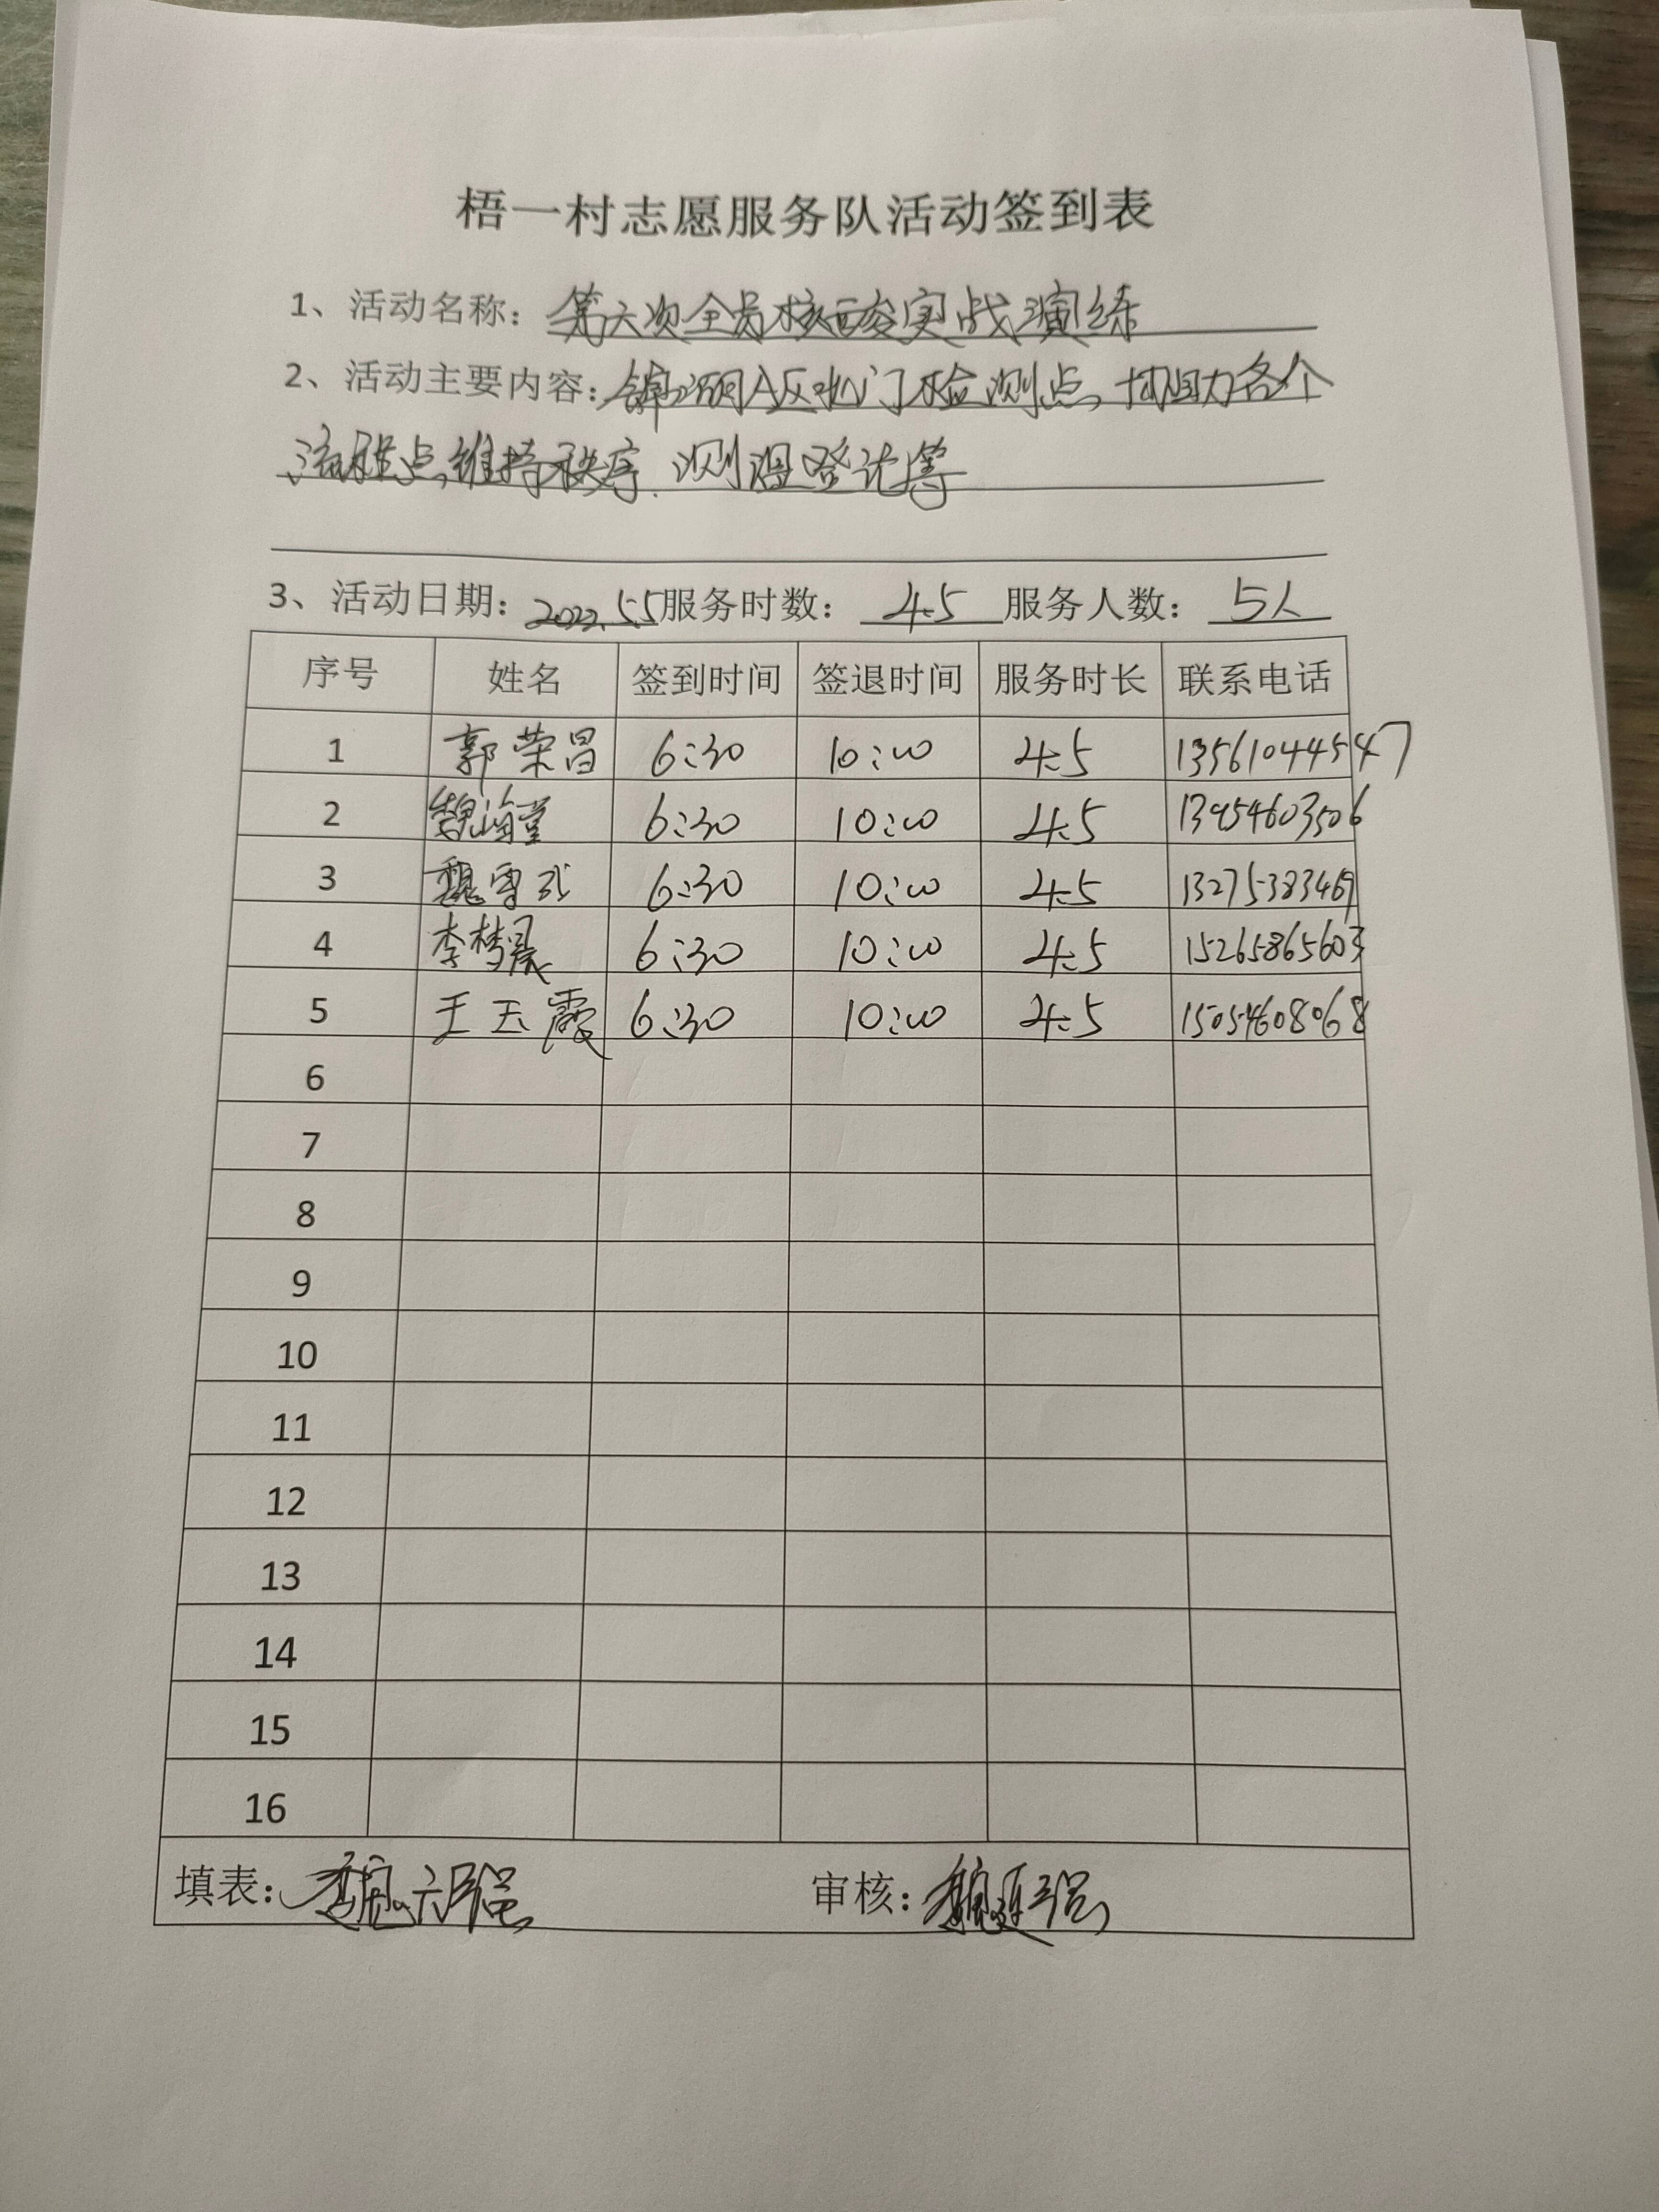 梧一村志愿服务队活动签到表
1、活动名称: 第六次全员核酸实战演练
2、活动主要内容: 锦湖A区北门检测点,协助各个
流程点,维持秩序、测温登记等
3、活动日期: 2022.5.5 服务时数: 4.5 服务人数: 5人
序号 姓名 签到时间 签退时间 服务时长 联系电话
1 郭荣昌 6:30 10:00 4.5 13561044547
2 魏海堂 6:30 10:00 4.5 13954603506
3 魏雪 6:30 10:00 4.5 13275383469
4 李梦晨 6:30 10:00 4.5 15265865603
5 王玉霞 6:30 10:00 4.5 15054608068
6
7
8
9
10
11
12
13
14
15
16
填表: 魏 审核: 魏延强